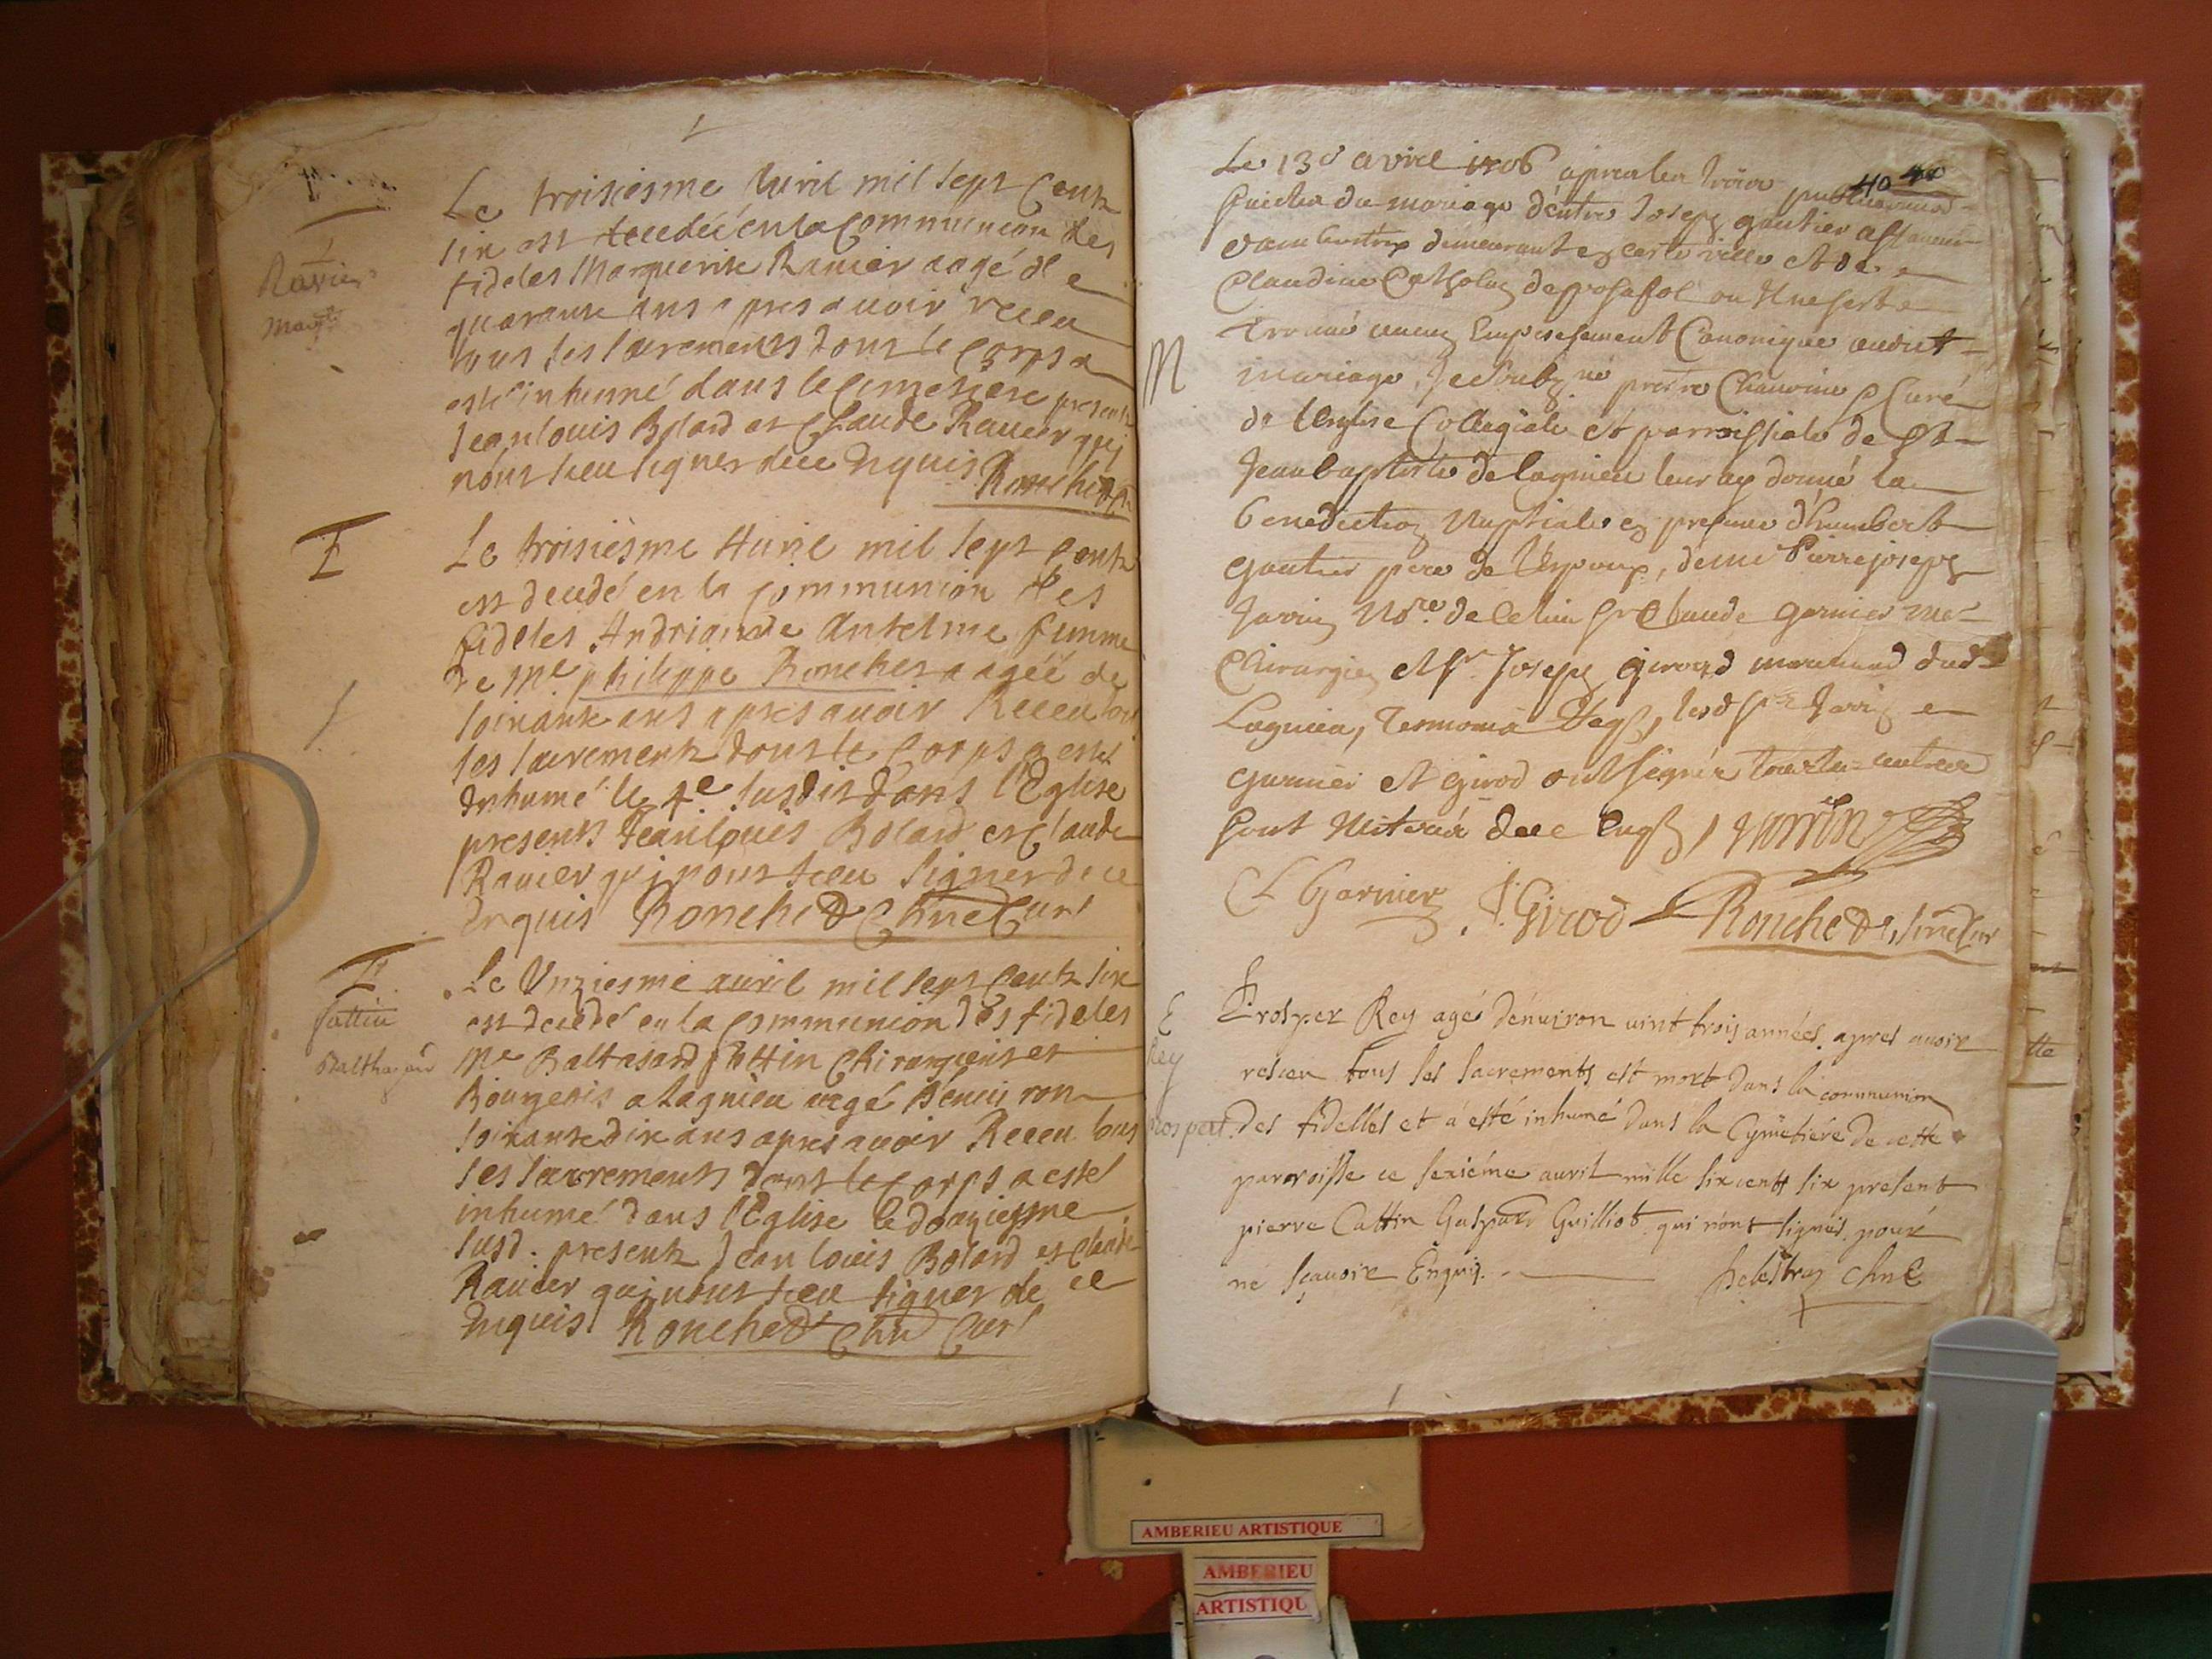 Ravier
Margte
Le troisiesme Avril mil sept Centz
six est decedéé en la Communion des
fideles Marguerite Ravier aagé de
quarante ans apres avoir receu
tous ses sacrements dont le Corps a
esté inhumé dans le cimetiere presents
Jean louis Bolard et Claude Ravier qui
nont sceu signer dece Enquis Ronchet
E
Le troisiesme Avril mil sept Centz
est decedé en la Communion des
fideles Andrianne Antelme femme
de Me philippe Ronchet aagéé de
soixante ans apres avoir Receu tous
ses sacrements dont le Corps a esté
Inhumé le 4e susdit dans l'Eglise
presents Jean louis Bolard et Claude
Ravier qui nont sceu signer de ce
Enquis Ronchet Chne Curé
E
Cattin
Balthazard
Le Unziesme avril mil sept Centz six
est decedé en la Communion des fideles
Me Baltasard Cattin Chirurgien et
Bourgeois a Lagnieu aagé denviron
soixante dix ans apres avoir Receu tous
ses sacrements dont le Corps a esté
inhumé dans l'Eglise le douziesme
susd. presents Jean louis Bolard et Claude
Ravier qui nont sceu signer de ce
Enquis Ronchet Chne Curé
40 40
Le 13e avril 1706 apres les trois
du mariage d'entre Joseph gautier
demeurant en cette ville et de
Claudine de
trouvé aucun Empeschement Canonique audict
M
mariage, Je soubzné prestre Chanoine & Curé
de l'Eglise Collegiale et parroissiale de St
Jean baptiste de Lagnieu leur ay donné la
benediction Nuptiale en presence d'humbert
gautier pere de l'Espoux, de me Pierre joseph
Jarrin Nore de Sr Claude garnier me
Chirurgien et Sr Joseph girod marchand dud
Lagnieu, Temoins lesd Srs Jarrin
garnier et Girod ont signés tous les autres
sont de ce Enqs, Jarrin
Cl Garnier J. Girod Ronchet, Chne Cur
E
Rey
Prospert
Prosper Rey agé d'environ vint trois années apres avoir
resceu tous ses sacrements est mort dans la communion
des fidelles et a esté inhumé dans la Cymetiére de cette
parroisse ce sexiéme avril mille six cents six present
pierre Cattin Gaspard Guilliot qui n'ont signés pour
ne sçavoir Enquis. Delestraz chne
AMBERIEU ARTISTIQUE
AMBERIEU
ARTISTIQU